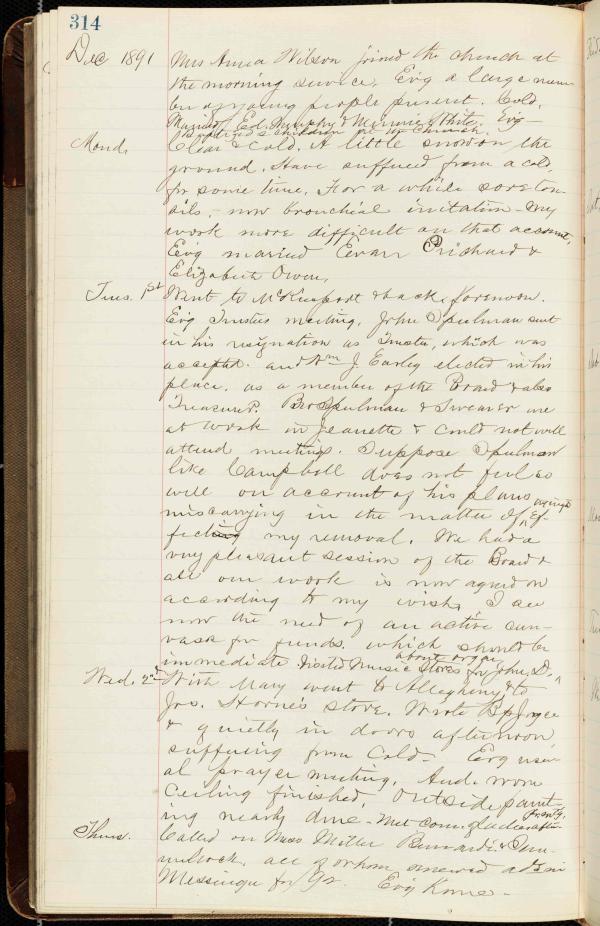 314
Dec 1891 Mrs Anna Wilson joined the church at
the morning service. Ev'g a large num
ber of young people present. Cold.
Married Ed. Murphy & Minnie White. Ev'g
Baptized 2 children in church.
Mond. Clear & Cold. A little snow on the
ground. Have suffered from a cold
for some time. For a while sore ton-
sils, now bronchial irritation. My
work more difficult on that account.
Ev'g married Evan Prichard &
Elizabeth Owen.
Tues. 1st Went to McKeesport & back, forenoon.
Ev'g Trustee meeting. John Spulman sent
in his resignation as Trustee, which was
accepted. and Wm J. Earley elected in his
place, as a member of the Board & also
Treasurer. Bro Spulman & Swearer are
at work in Jeanette & could not well
attend meetings. Suppose Spulman
like Campbell does not feel so
well on account of his plans
miscarrying in the matter of Ef-
fecting my removal. We had a
very pleasant session of the Board &
all our work is now agreed on
according to my wish. I see
now the need of an active can-
vass for funds, which should be
about organ
immediate. Visited Music Stores for John D.
Wed. 2nd With Mary went to Allegheny & to
Jos. Horne's store. Wrote Bp Joyce
& quietly in doors afternoon
suffering from Cold. Ev'g usu
al prayer meeting. Aud. room
Ceiling finished. Outside paint-
ing nearly done. Met Com.
Thurs. Called on Miss Miller
all of whom renewed
Messenger for Yr. Ev'g Home.